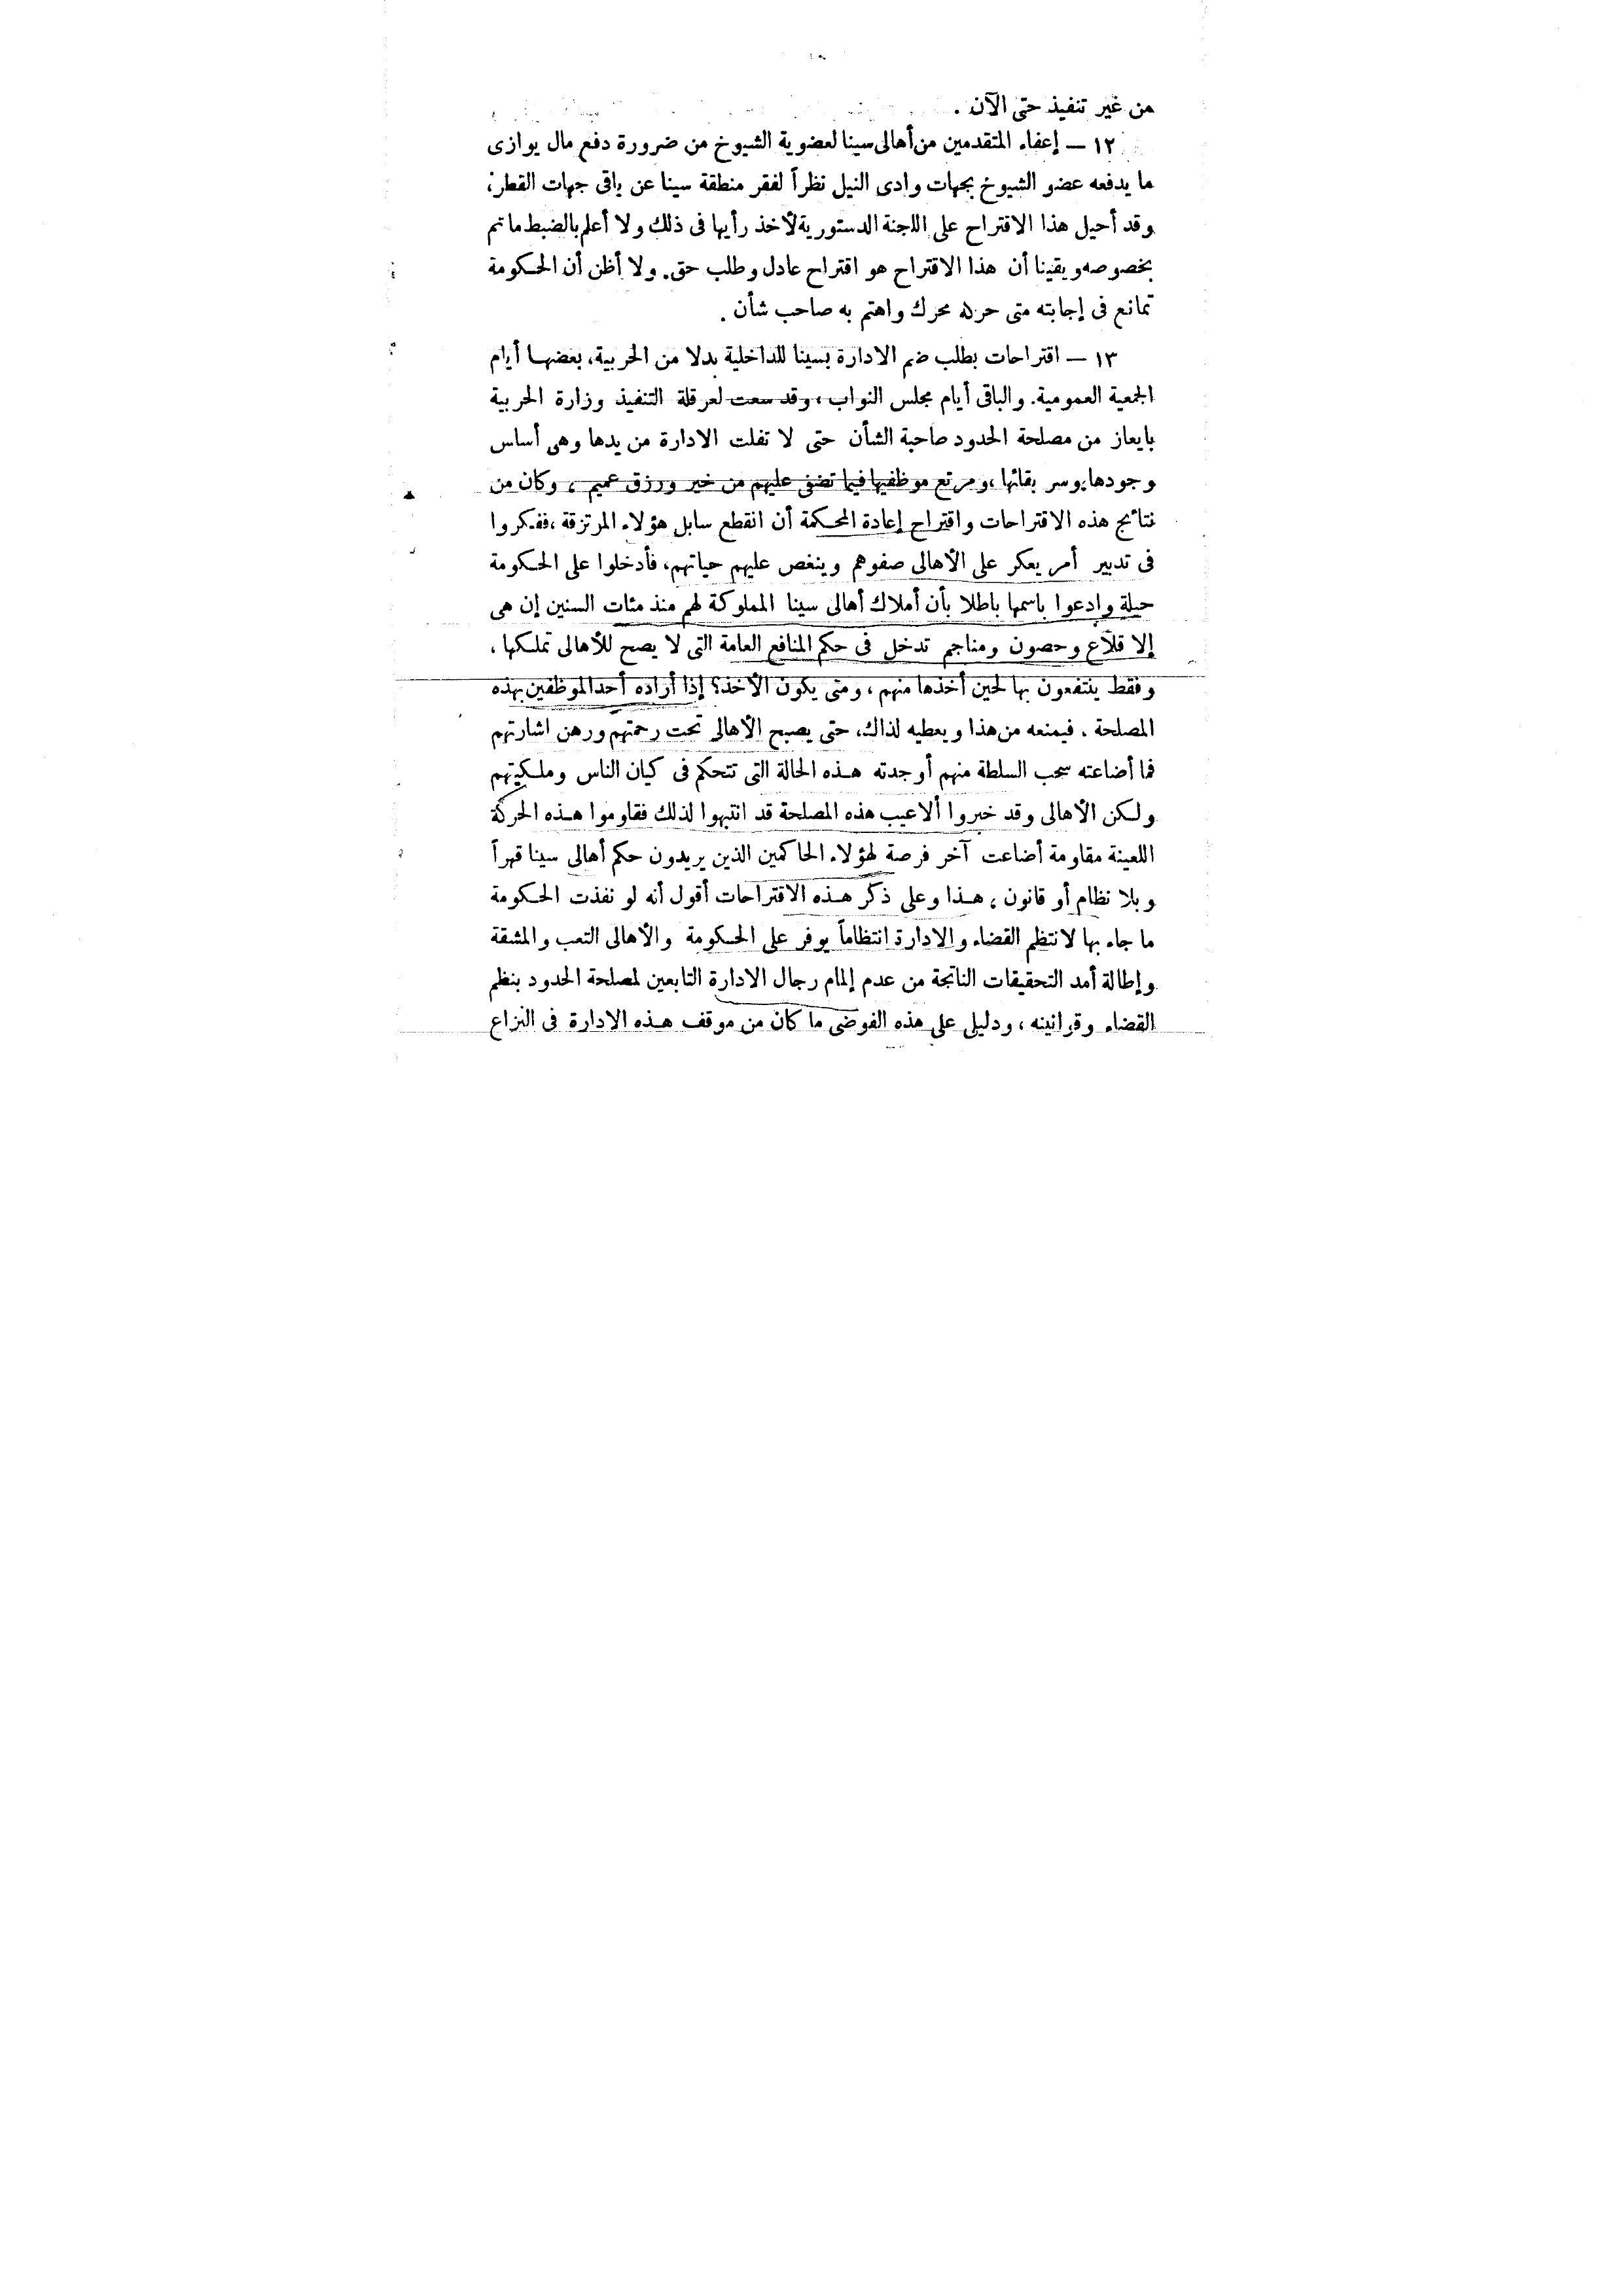 من غير تنفيذ حتى الآن .
١٢ — إعفاء المتقدمين من أهالى سينا لعضوية الشيوخ من ضرورة دفع مال يوازى
ما يدفعه عضو الشيوخ بجهات وادى النيل نظراً لفقر منطقة سينا عن باقى جهات القطر؛
وقد أحيل هذا الاقتراح على اللجنة الدستورية لأخذ رأيها فى ذلك ولا أعلم بالضبط ما تم
بخصوصه ويقينا أن هذا الاقتراح هو اقتراح عادل وطلب حق. ولا أظن أن الحكومة
تمانع فى إجابته متى حركه محرك واهتم به صاحب شأن .
١٣ — اقتراحات بطلب ضم الادارة بسينا للداخلية بدلا من الحربية، بعضها أيام
الجمعية العمومية. والباقى أيام مجلس النواب، وقد سعت لعرقلة التنفيذ وزارة الحربية
بايعاز من مصلحة الحدود صاحبة الشأن حتى لا تفلت الادارة من يدها وهى أساس
وجودها وسر بقائها، ومرتع موظفيها فيما تضفى عليهم من خير ورزق عميم ، وكان من
نتائج هذه الاقتراحات واقتراح إعادة المحكمة أن انقطع سابل هؤلاء المرتزقة، ففكروا
فى تدبير أمر يعكر على الأهالى صفوهم وينغص عليهم حياتهم، فأدخلوا على الحكومة
حيلة وادعوا باسمها باطلا بأن أملاك أهالى سينا المملوكة لهم منذ مئات السنين إن هى
إلا قلاع وحصون ومناجم تدخل فى حكم المنافع العامة التى لا يصح للأهالى تملكها ،
وفقط ينتفعون بها لحين أخذها منهم ، ومتى يكون الأخذ؟ إذا أراده أحد الموظفين بهذه
المصلحة . فيمنعه من هذا ويعطيه لذاك، حتى يصبح الأهالى تحت رحمتهم ورهن اشارتهم
فما أضاعته سحب السلطة منهم أوجدته هذه الحالة التى تتحكم فى كيان الناس وملكيتهم
ولكن الأهالى وقد خبروا ألاعيب هذه المصلحة قد انتبهوا لذلك فقاوموا هذه الحركة
اللعينة مقاومة أضاعت آخر فرصة لهؤلاء الحاكمين الذين يريدون حكم أهالى سينا قهراً
وبلا نظام أو قانون ، هذا وعلى ذكر هذه الاقتراحات أقول أنه لو نفذت الحكومة
ما جاء بها لانتظم القضاء والادارة انتظاماً يوفر على الحكومة والأهالى التعب والمشقة
وإطالة أمد التحقيقات الناتجة من عدم إلمام رجال الادارة التابعين لمصلحة الحدود بنظم
القضاء وقوانينه ، ودليلى على هذه الفوضى ما كان من موقف هذه الادارة فى النزاع